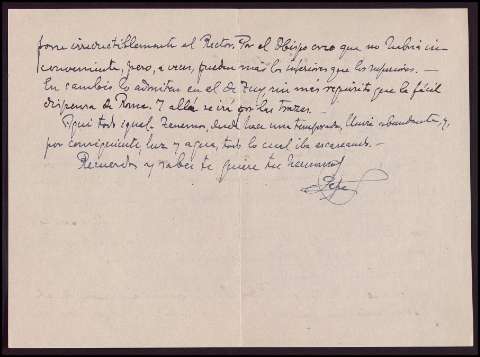 pone irreductiblemente el Rector. Por el Obispo creo que no hubiera in-
conveniente, pero, a veces, pueden más los inferiores que los superiores. —
En cambio lo admiten en el de Tuy, sin mas requisito que la fácil
dispensa de Roma. Y allá se irá por las trazas. —
Aquí todo igual. Tenemos, desde hace una temporada, lluvia abundante y,
por consiguiente, luz y agua, todo lo cual iba escaseando. —
Recuerdos y sabes te quiere tu hermano
Pepe